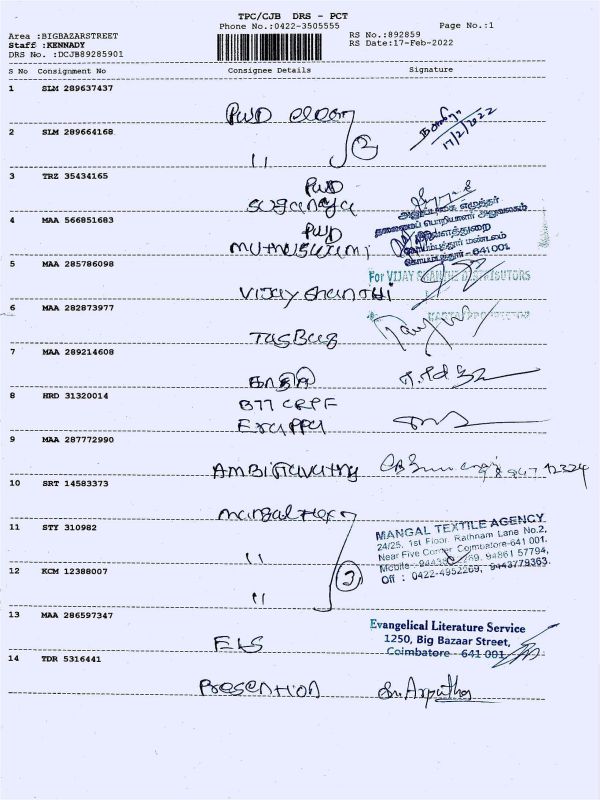 TPC/CJB DRS - PCT
Phone No.:0422-3505555 Page No.:1
Area :BIGBAZARSTREET RS No.:892859
Staff :KENNADY RS Date:17-Feb-2022
DRS No. :DCJB89285901
S No Consignment No Consignee Details Signature
1 SLM 289637437
PWD
2 SLM 289664168 17/2/2022
" 2
3 TRZ 35434165
PWD
suganya
4 MAA 566851683
PWD
muthuswami
கோயம்புத்தூர் மண்டலம்
கோயம்புத்தூர் - 641 001
5 MAA 285786098
For VIJAY SHANTHI DISTRIBUTORS
Vijay Shanthi
6 MAA 282873977
7 MAA 289214608
8 HRD 31320014
B77 CRPF
9 MAA 287772990
10 SRT 14583373
mangal Tex
11 STY 310982
MANGAL TEXTILE AGENCY
24/25, 1st Floor, Rathnam Lane No.2,
Near Five Corner Coimbatore-641 001.
"
Mobile 94861 57794,
Off : 0422-4952269, 9443779363.
12 KCM 12388007
" 3
13 MAA 286597347
Evangelical Literature Service
1250, Big Bazaar Street,
Coimbatore - 641 001
ELS
14 TDR 5316441
Presention